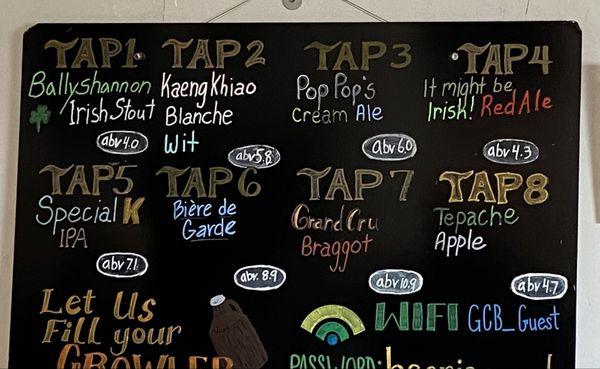 TAP1
Ballyshannon
Irish Stout
abv 4.0
TAP 2
Kaeng Khiao
Blanche
Wit
abv 5.8
TAP 3
Pop Pop's
Cream Ale
abv 6.0
TAP 4
It might be
Irish! Red Ale
abv 4.3
TAP 5
Special K
IPA
abv 7.1
TAP 6
Bière de
Garde
abv. 8.9
TAP 7
Grand Cru
Braggot
abv 10.9
TAP 8
Tepache
Apple
abv 4.7
Let Us
Fill your
GROWLER
WIFI GCB_Guest
PASSWORD: